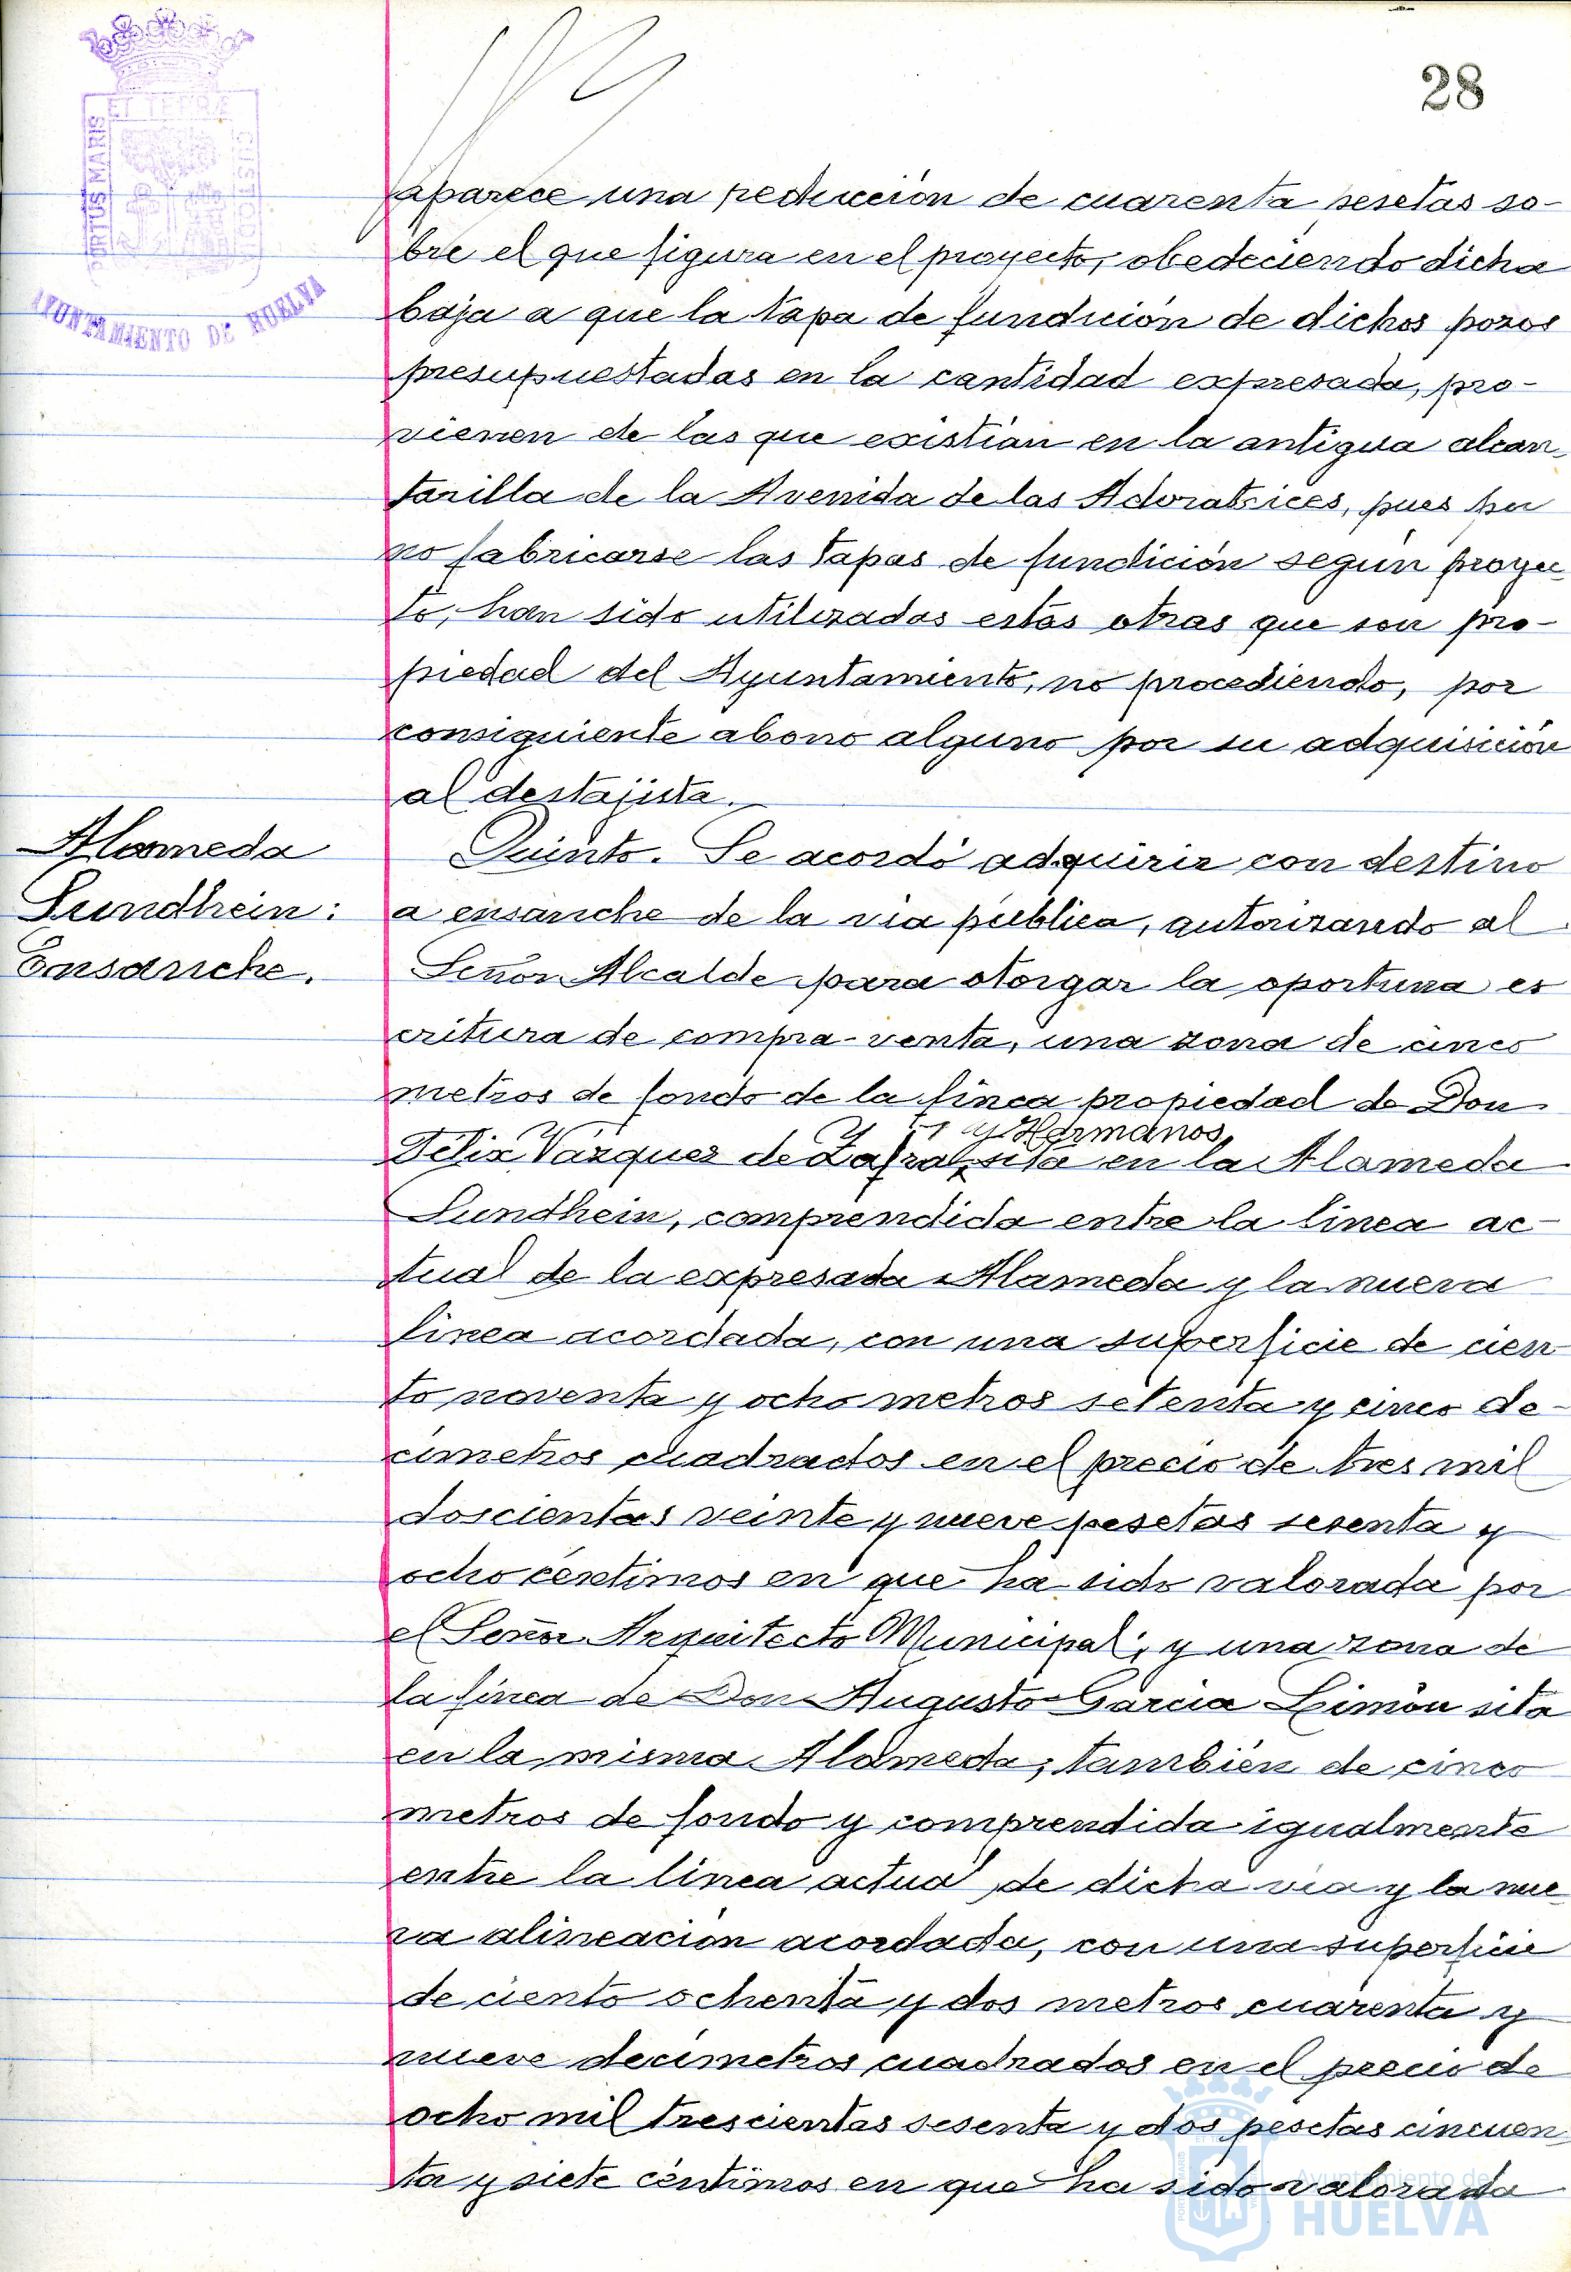 28
PORTUS MARIS ET TERRÆ CUSTODIÆ
AYUNTAMIENTO DE HUELVA
aparece una reducción de cuarenta pesetas so-
bre el que figura en el proyecto, obedeciendo dicha
baja a que la tapa de fundición de dichos pozos
presupuestadas en la cantidad expresada, pro-
vienen de las que existian en la antigua alcan-
tarilla de la Avenida de las Adoratrices, pues por
no fabricarse las tapas de fundición según proyec-
to, han sido utilizadas estas otras que son pro-
piedad del Ayuntamiento, no procediendo, por
consiguiente abono alguno por su adquisición
al destajista.
Alameda
Sundhein:
Ensanche.
Quinto. Se acordó adquirir con destino
a ensanche de la via pública, autorizando al
Señor Alcalde para otorgar la oportuna es
critura de compra-venta, una zona de cinco
metros de fondo de la finca propiedad de Don
y Hermanos,
Félix Vázquez de Zafra, sita en la Alameda
Sundhein, comprendida entre la linea ac-
tual de la expresada Alameda y la nueva
linea acordada, con una superficie de cien
to noventa y ocho metros setenta y cinco de-
cimetros cuadrados en el precio de tres mil
doscientas veinte y nueve pesetas sesenta y
ocho céntimos en que ha sido valorada por
el Señor Arquitecto Municipal; y una zona de
la finca de Don Augusto Garcia Limón sita
en la misma Alameda, también de cinco
metros de fondo y comprendida igualmente
entre la linea actual de dicha via y la nue
va alineación acordada, con una superficie
de ciento ochenta y dos metros cuarenta y
nueve decimetros cuadrados en el precio de
ocho mil trescientas sesenta y dos pesetas cincuen
ta y siete céntimos en que ha sido valorada
Ayuntamiento de
HUELVA